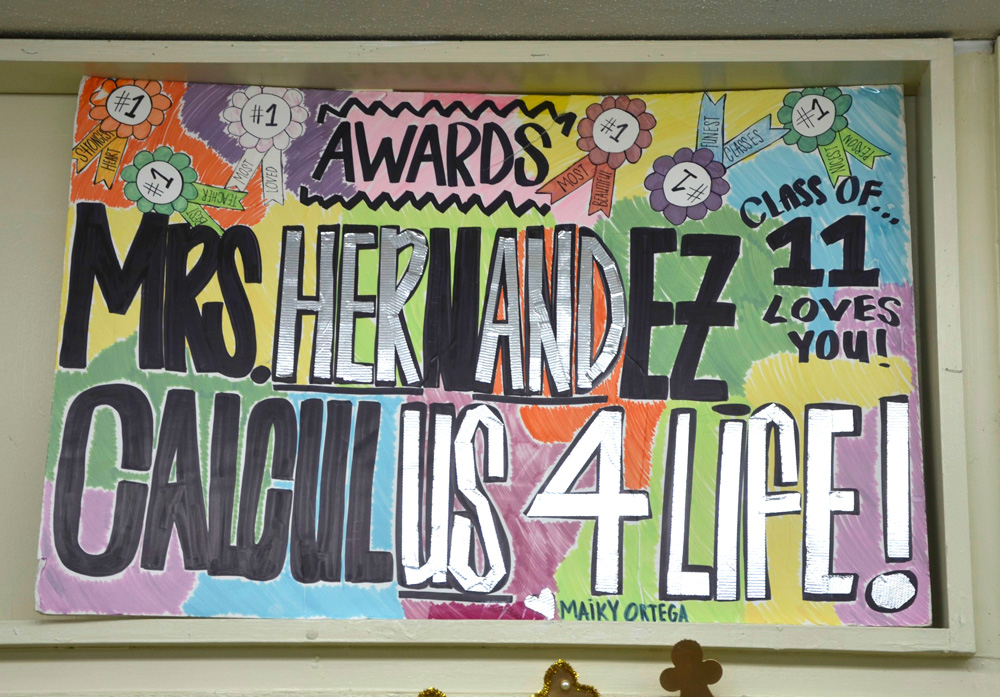 #1
STRONGEST HART
#1
MOST LOVED
#1
BEST TEACHER
AWARDS
#1
MOST BEAUTIFUL
#1
FUNEST CLASSES
#1
NICEST PERSON
CLASS OF...
11
LOVES
YOU!
MRS. HERNANDEZ
CALCULUS 4 LIFE!
MAIKY ORTEGA